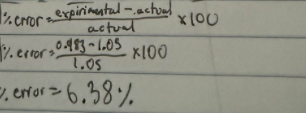 % error = expirimental - actual / actual × 100
% error = 0.983 - 1.05 / 1.05 × 100
% error = 6.38 %